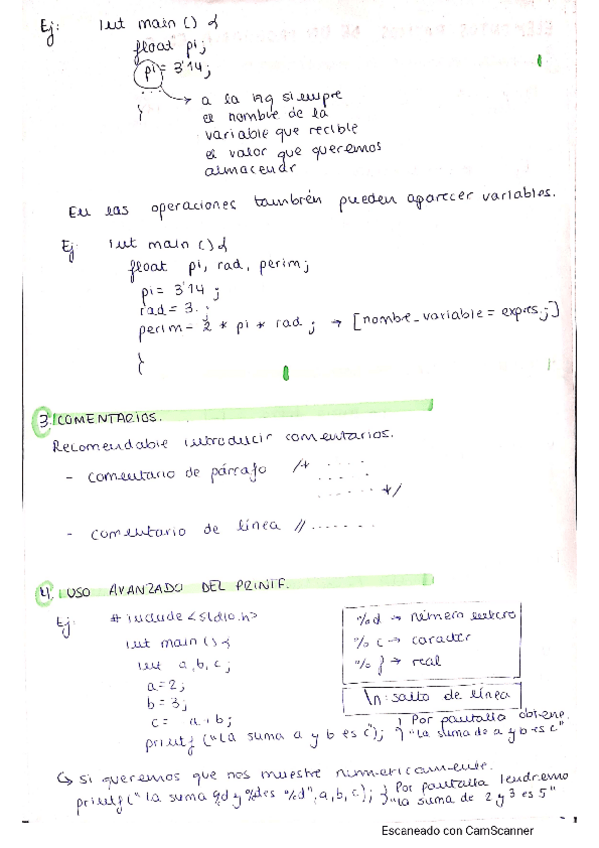 Ej: int main () {
float pi;
pi = 3'14;
...
}
a la izq siempre
el nombre de la
variable que recible
el valor que queremos
almacenar
En las operaciones también pueden aparecer variables.
Ej: int main () {
float pi, rad, perim;
pi = 3'14 ;
rad = 3. ;
perim = 2 * pi * rad ; → [nombre_variable = expres.;]
}
3. COMENTARIOS.
Recomendable introducir comentarios.
- comentario de párrafo /* ....
....
.... */
- comentario de línea // .......
4. USO AVANZADO DEL PRINTF.
Ej: # include <stdio.h>
int main () {
int a, b, c ;
a = 2 ;
b = 3 ;
c = a + b ;
printf ("La suma a y b es c"); } Por pantalla obtiene
"La suma de a y b es c"
%d → número entero
%c → caracter
%f → real
\n: salto de línea
↳ si queremos que nos muestre numericamente.
printf (" La suma %d y %d es "%d", a, b, c); } Por pantalla tendremo
"la suma de 2 y 3 es 5"
Escaneado con CamScanner